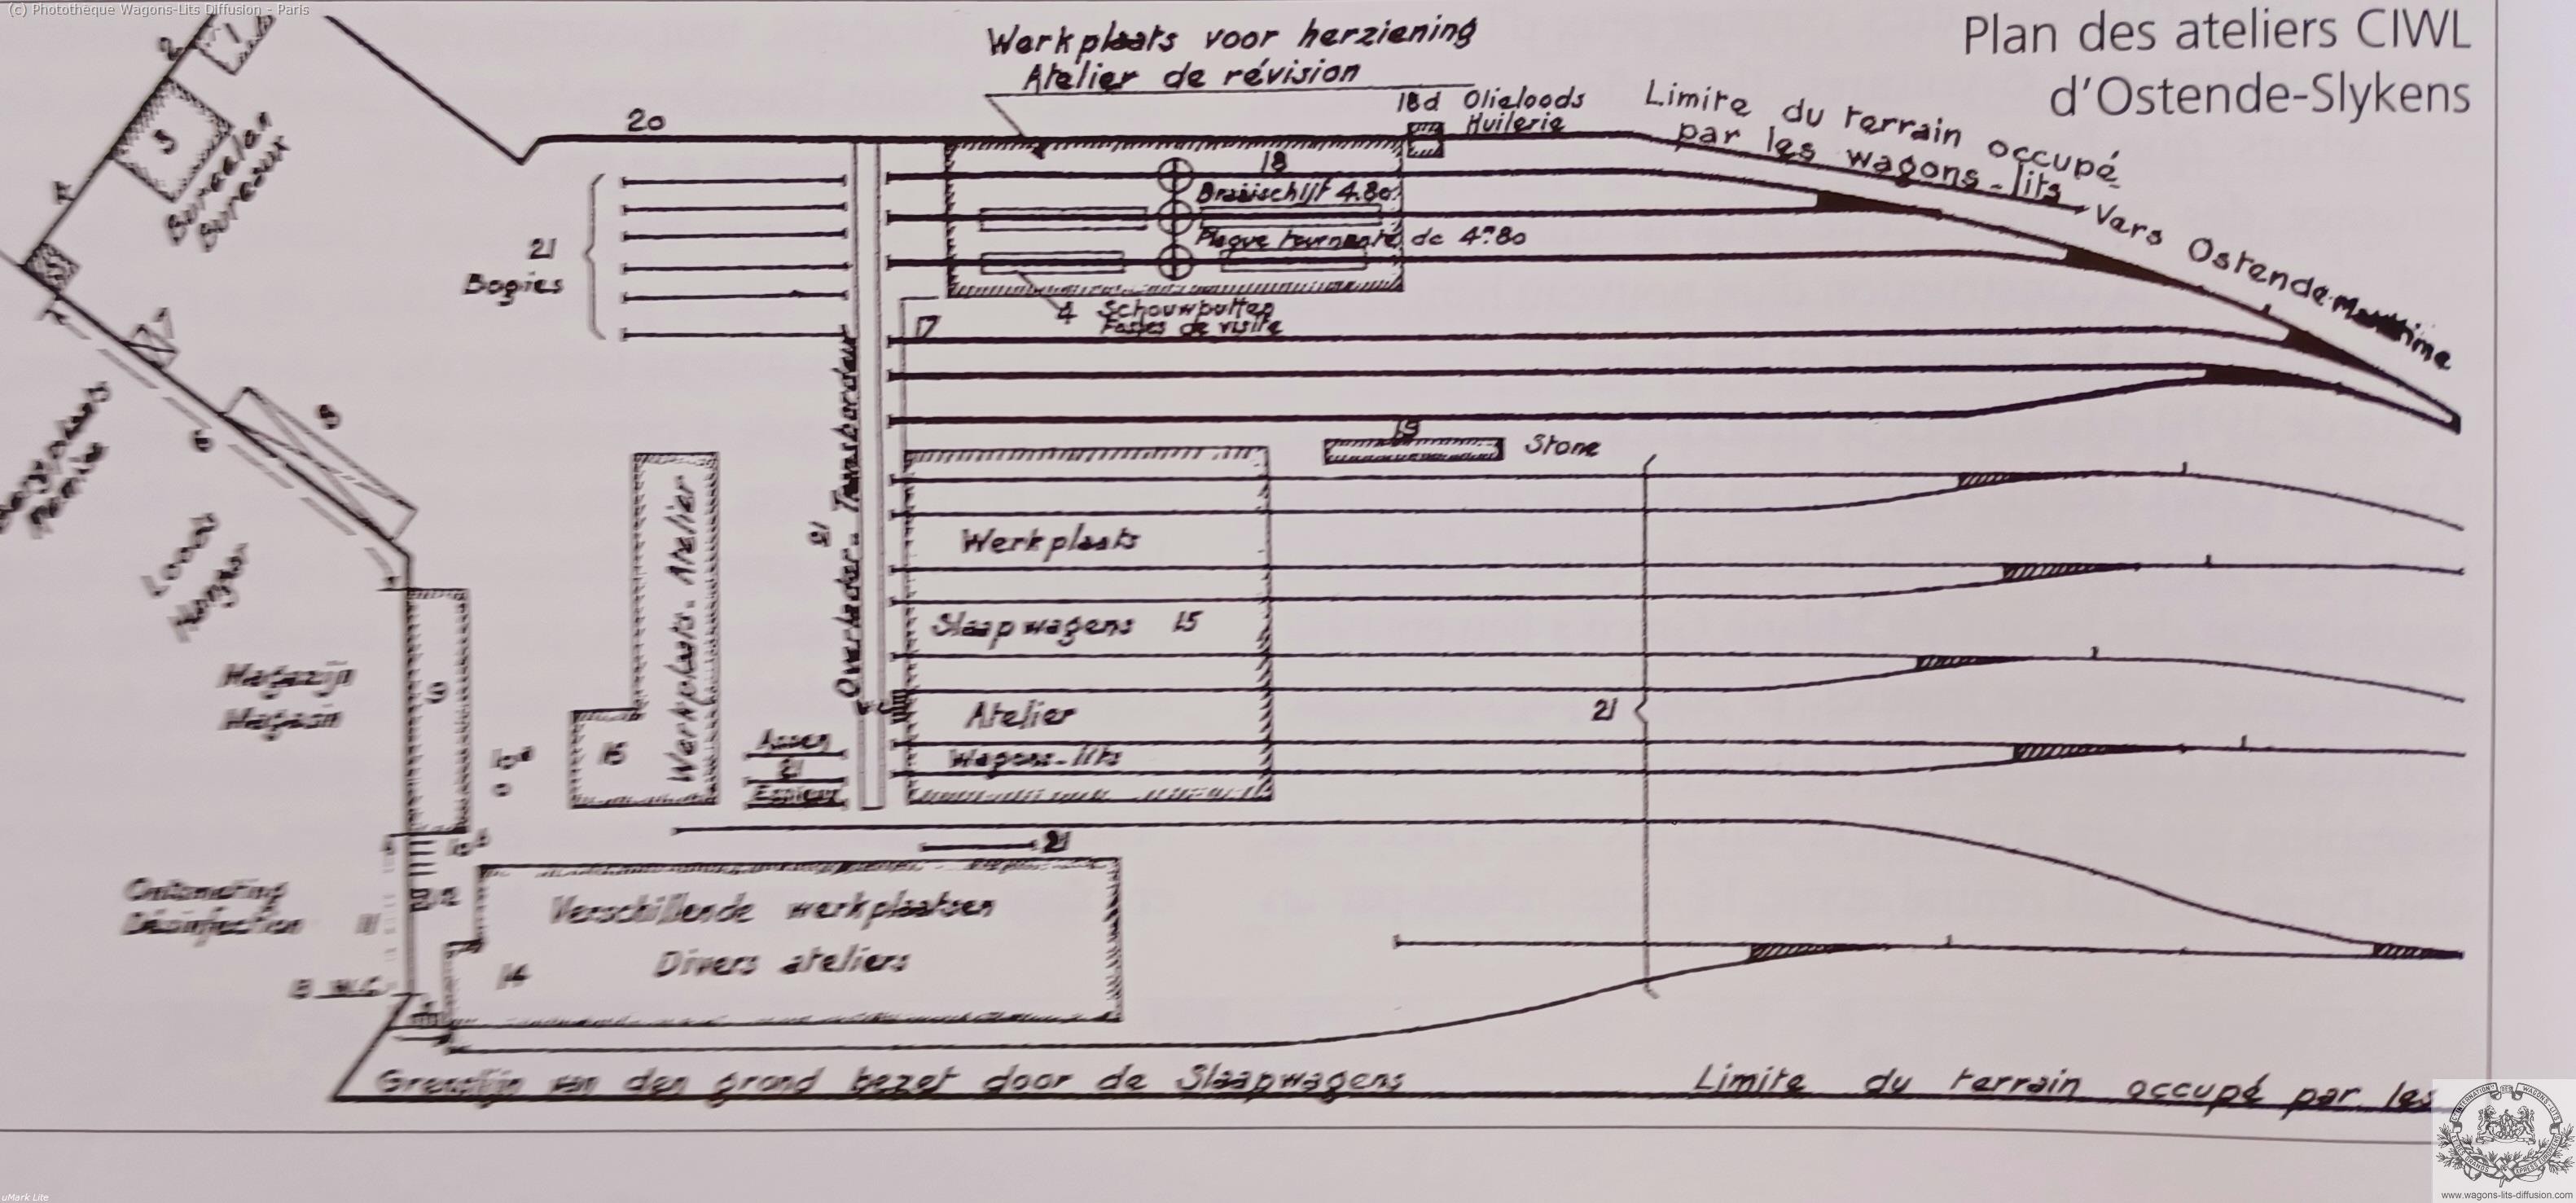 (c) Photothèque Wagons-Lits Diffusion - Paris
Plan des ateliers CIWL
d'Ostende-Slykens
Werkplaats voor herziening
Atelier de révision
18d Olieloods
Huilerie
Limite du terrain occupé
par les wagons-lits
Vers Ostende-Maritime
1
2
3
Bureelen
Bureaux
20
18
Draaischijf 4.80
Plaque tournante de 4m80
21
Bogies
4 Schouwputten
Fosses de visite
17
6
8
Loods
Hangar
19
Stone
Werkplaats - Atelier
16
Overlader - Transbordeur
Werkplaats
Slaapwagens 15
Atelier
Wagons-lits
21
Magazijn
Magasin
9
Assen
21
Essieux
21
Ontsmetting
Désinfection
11
12
Verschillende werkplaatsen
Divers ateliers
14
Grenslijn van den grond bezet door de Slaapwagens
Limite du terrain occupé par les
www.wagons-lits-diffusion.com
uMark Lite